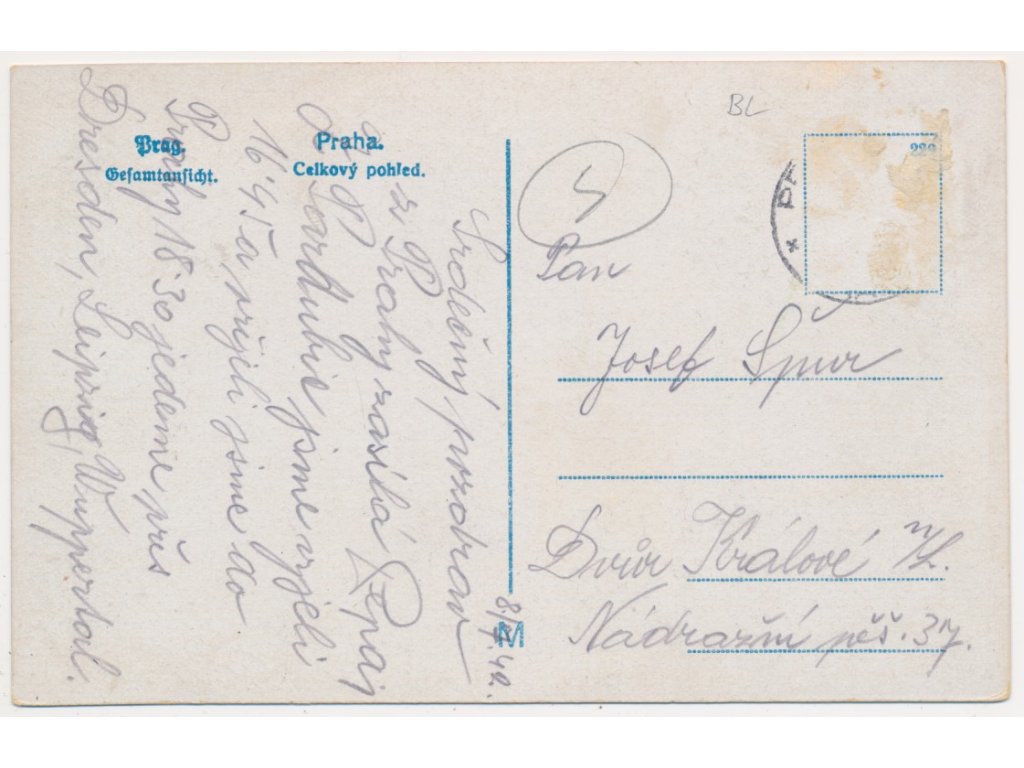 Prag.
Gesamtansicht.
Praha.
Celkový pohled.
BL
220
4
Srdečný pozdrav
z Prahy zasílá Pepa
Z Pardubic jsme vyjeli
16˙45 a přijeli jsme do
Prahy 18˙30 jedeme přes
Dresden, Leipzig, Wuppertal.
8/4.40.
M
Pan
Josef Špůr
Dvůr Králové n/L.
Nádražní pěš. 37.